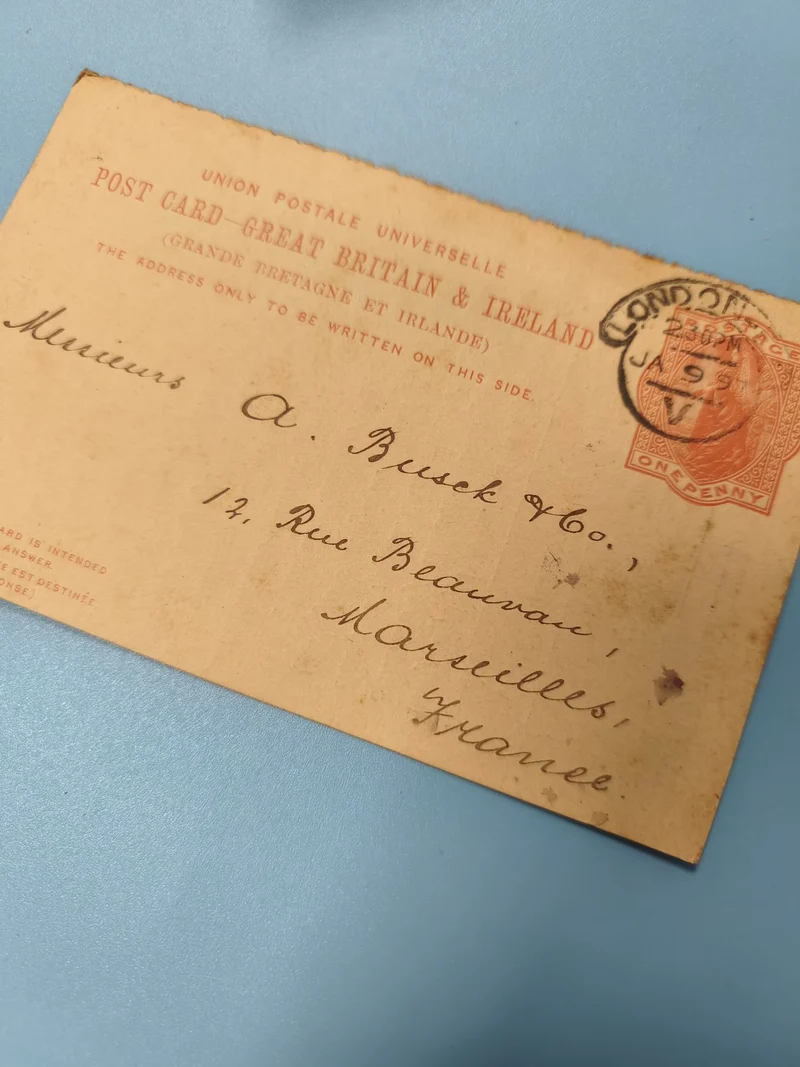 UNION POSTALE UNIVERSELLE
POST CARD-GREAT BRITAIN & IRELAND
(GRANDE BRETAGNE ET IRLANDE)
THE ADDRESS ONLY TO BE WRITTEN ON THIS SIDE.
LONDON
2 30PM
JA 9 9
V
POSTAGE
ONE PENNY
Messieurs
A. Busck & Co.,
12, Rue Beauvau,
Marseilles,
France.
ARD IS INTENDED
ANSWER.
E EST DESTINÉE
ONSE.)